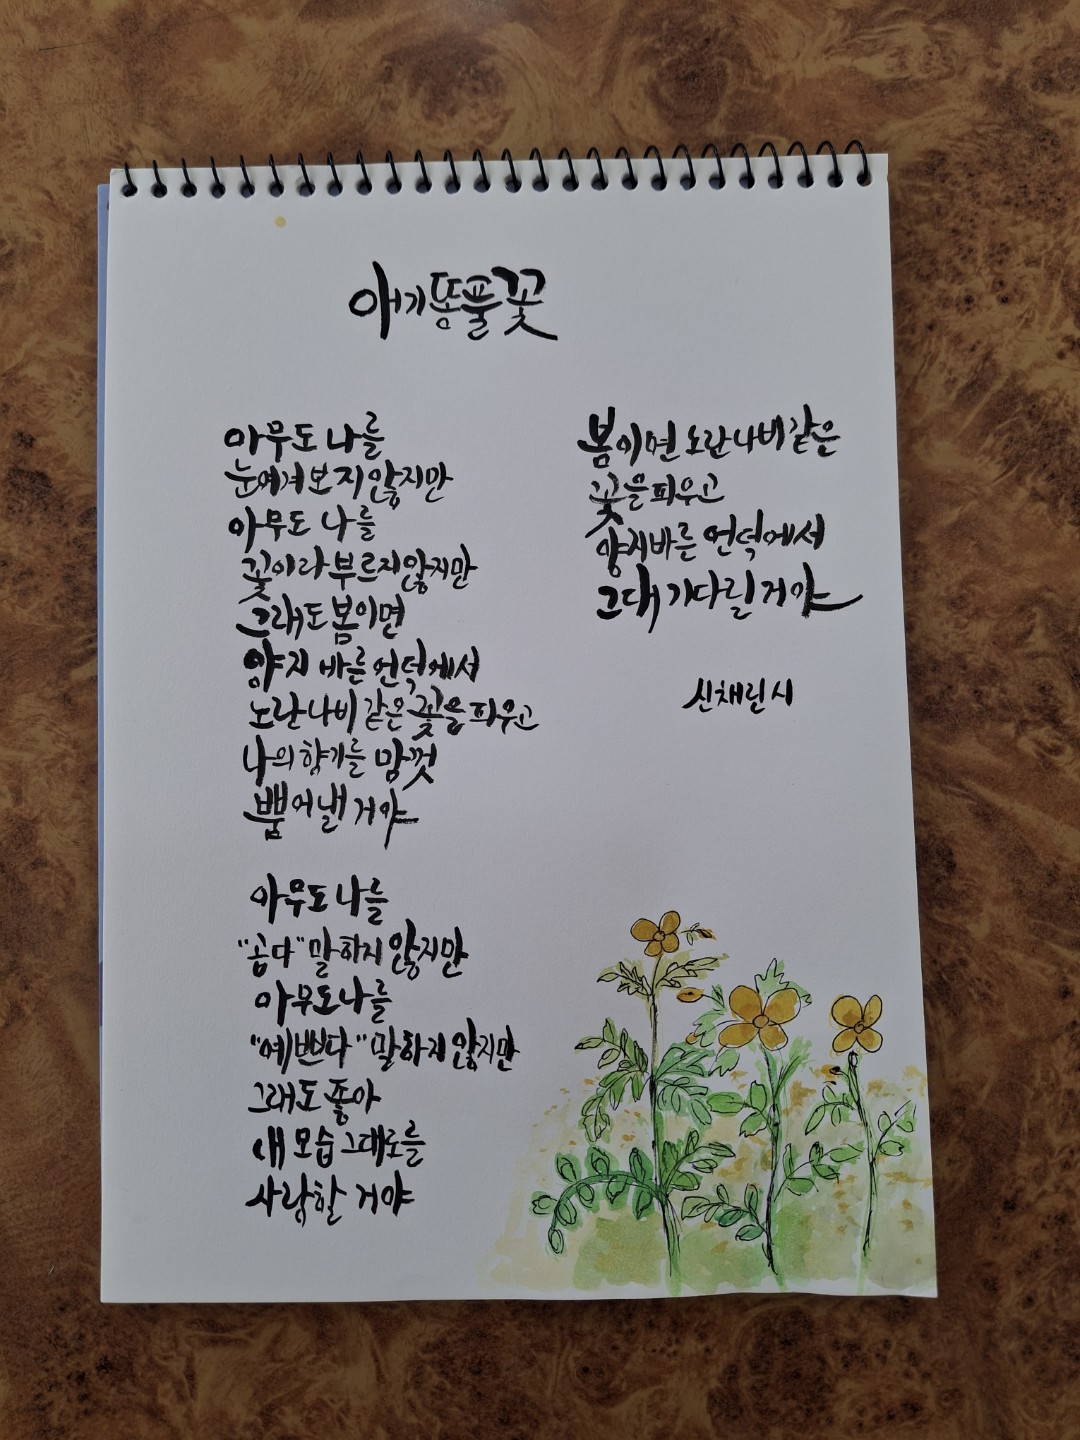 애기똥풀꽃
아무도 나를
눈여겨 보지 않지만
아무도 나를
꽃이라 부르지 않지만
그래도 봄이면
양지 바른 언덕에서
노란나비 같은 꽃을 피우고
나의 향기를 맘껏
뿜어낼 거야
아무도 나를
"곱다" 말하지 않지만
아무도 나를
"예쁘다" 말하지 않지만
그래도 좋아
내 모습 그대로를
사랑할 거야
봄이면 노란나비 같은
꽃을 피우고
양지바른 언덕에서
그대 기다릴 거야
신채린 시